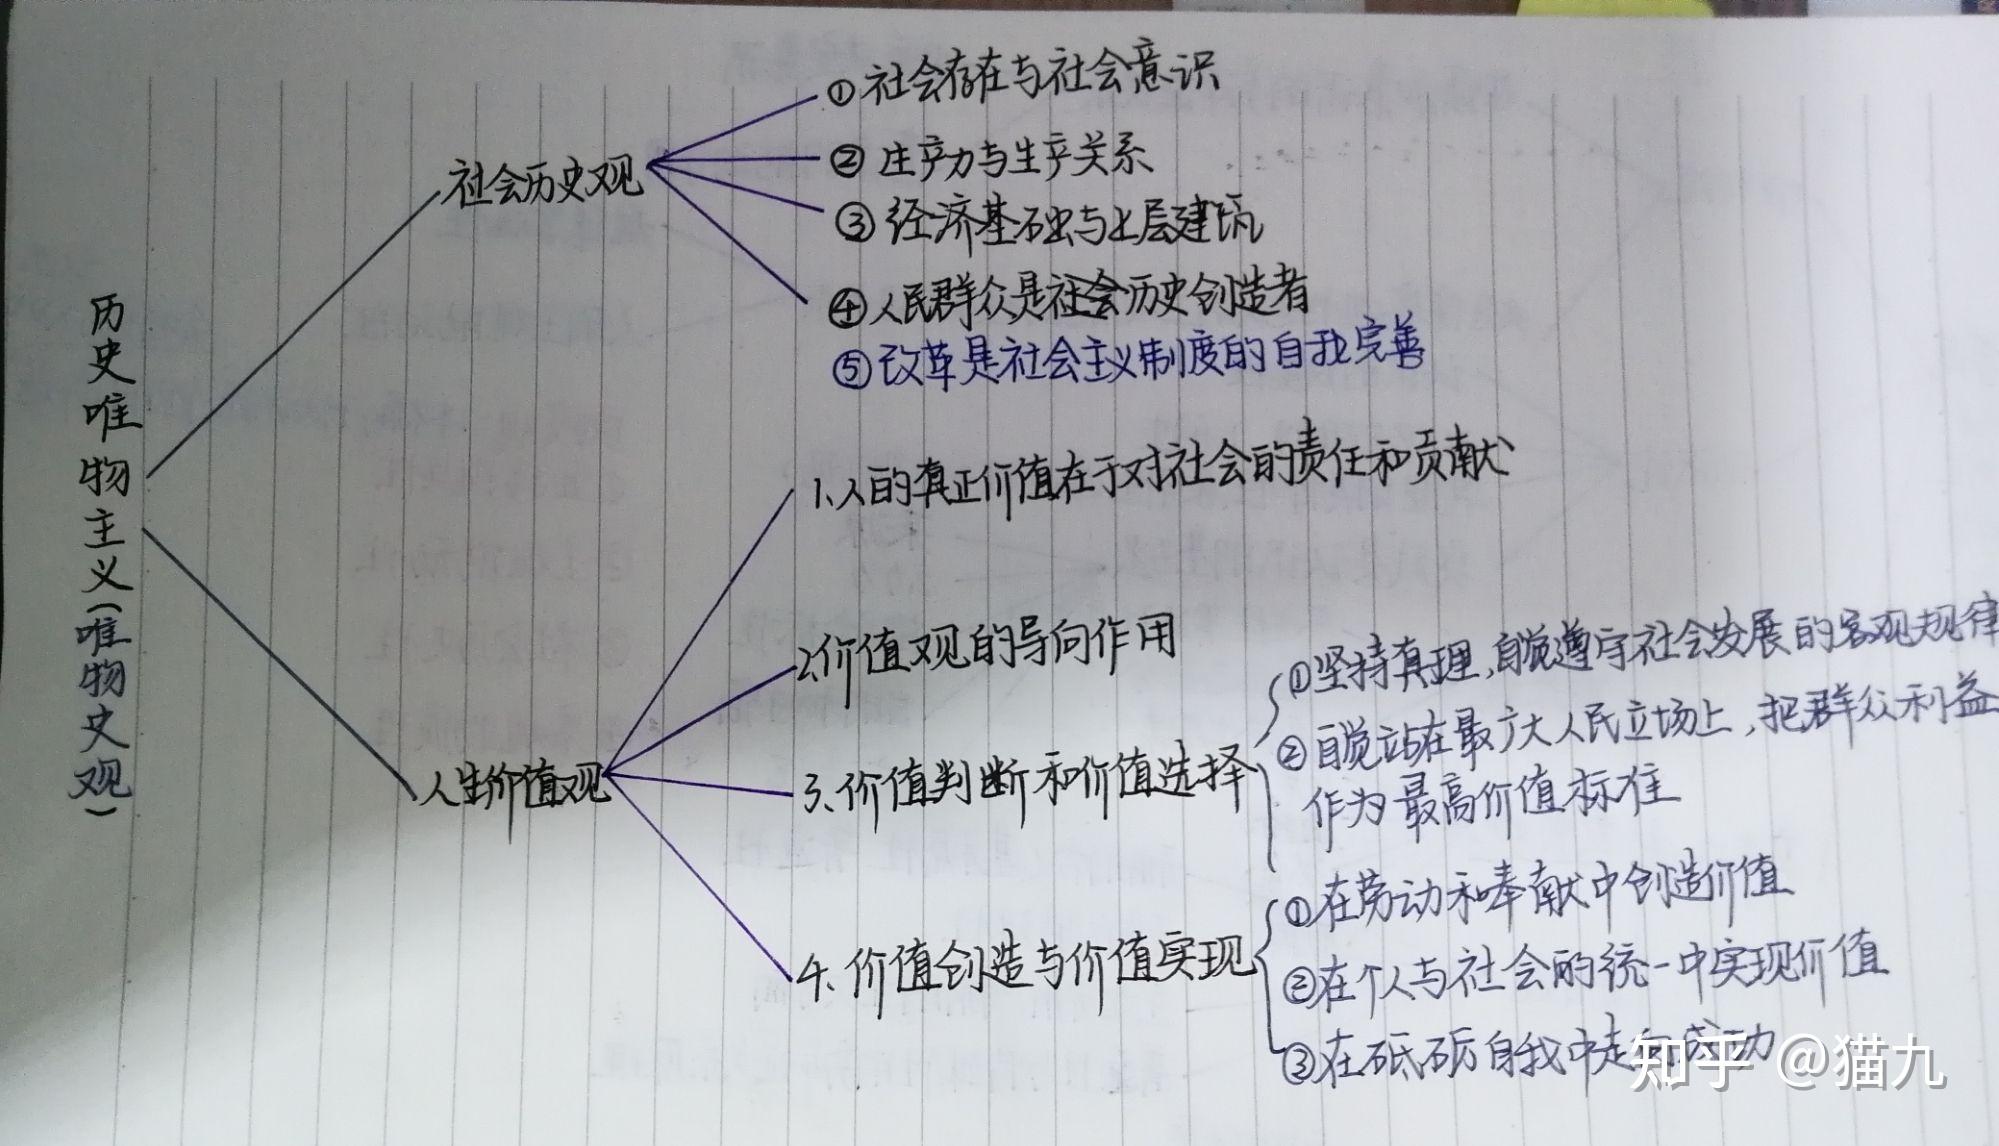 历史唯物主义(唯物史观)
社会历史观
①社会存在与社会意识
②生产力与生产关系
③经济基础与上层建筑
④人民群众是社会历史创造者
⑤改革是社会主义制度的自我完善
人生价值观
1、人的真正价值在于对社会的责任和贡献
2.价值观的导向作用
3、价值判断和价值选择
①坚持真理,自觉遵守社会发展的客观规律
②自觉站在最广大人民立场上,把群众利益
作为最高价值标准
4、价值创造与价值实现
①在劳动和奉献中创造价值
②在个人与社会的统一中实现价值
③在砥砺自我中走向成功
知乎 @猫九